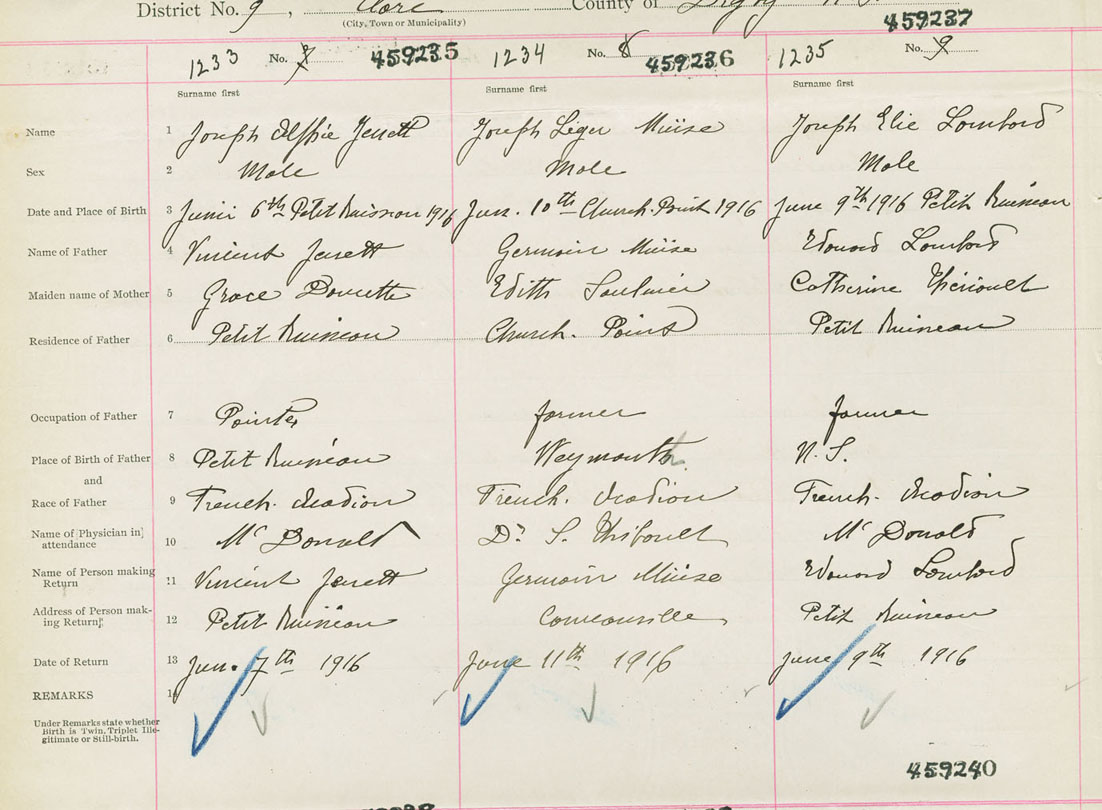 District No. 9, Clare County of Digby N.S.
(City, Town or Municipality)
459237
1233 No. 7 459235 1234 No. 8 459236 1235 No. 9
Surname first Surname first Surname first
Name 1 Joseph Jenett Joseph Leger Müise Joseph Elie Lomford
Sex 2 Male Male Male
Date and Place of Birth 3 6th Petit 1916 Jun. 10th Church Point 1916 June 9th 1916 Petit
Name of Father 4 Vincent Jenett Germain Müise Edouard Lomford
Maiden name of Mother 5 Grace Doucette Edith Saulnier Catherine Thériault
Residence of Father 6 Petit Church. Point Petit
Occupation of Father 7 farmer farmer
Place of Birth of Father 8 Petit Weymouth N.S.
and
Race of Father 9 French. Acadian French. Acadian French. Acadian
Name of [Physician in] attendance 10 Mc Donald Dr. S. Thibault Mc Donald
Name of Person making Return 11 Vincent Jenett Germain Müise Edouard Lomford
Address of Person mak-
ing Return 12 Petit Comeauville Petit
Date of Return 13 Jun. 7th 1916 June 11th 1916 June 9th 1916
REMARKS 14
Under Remarks state whether
Birth is Twin, Triplet Ille-
gitimate or Still-birth.
459240